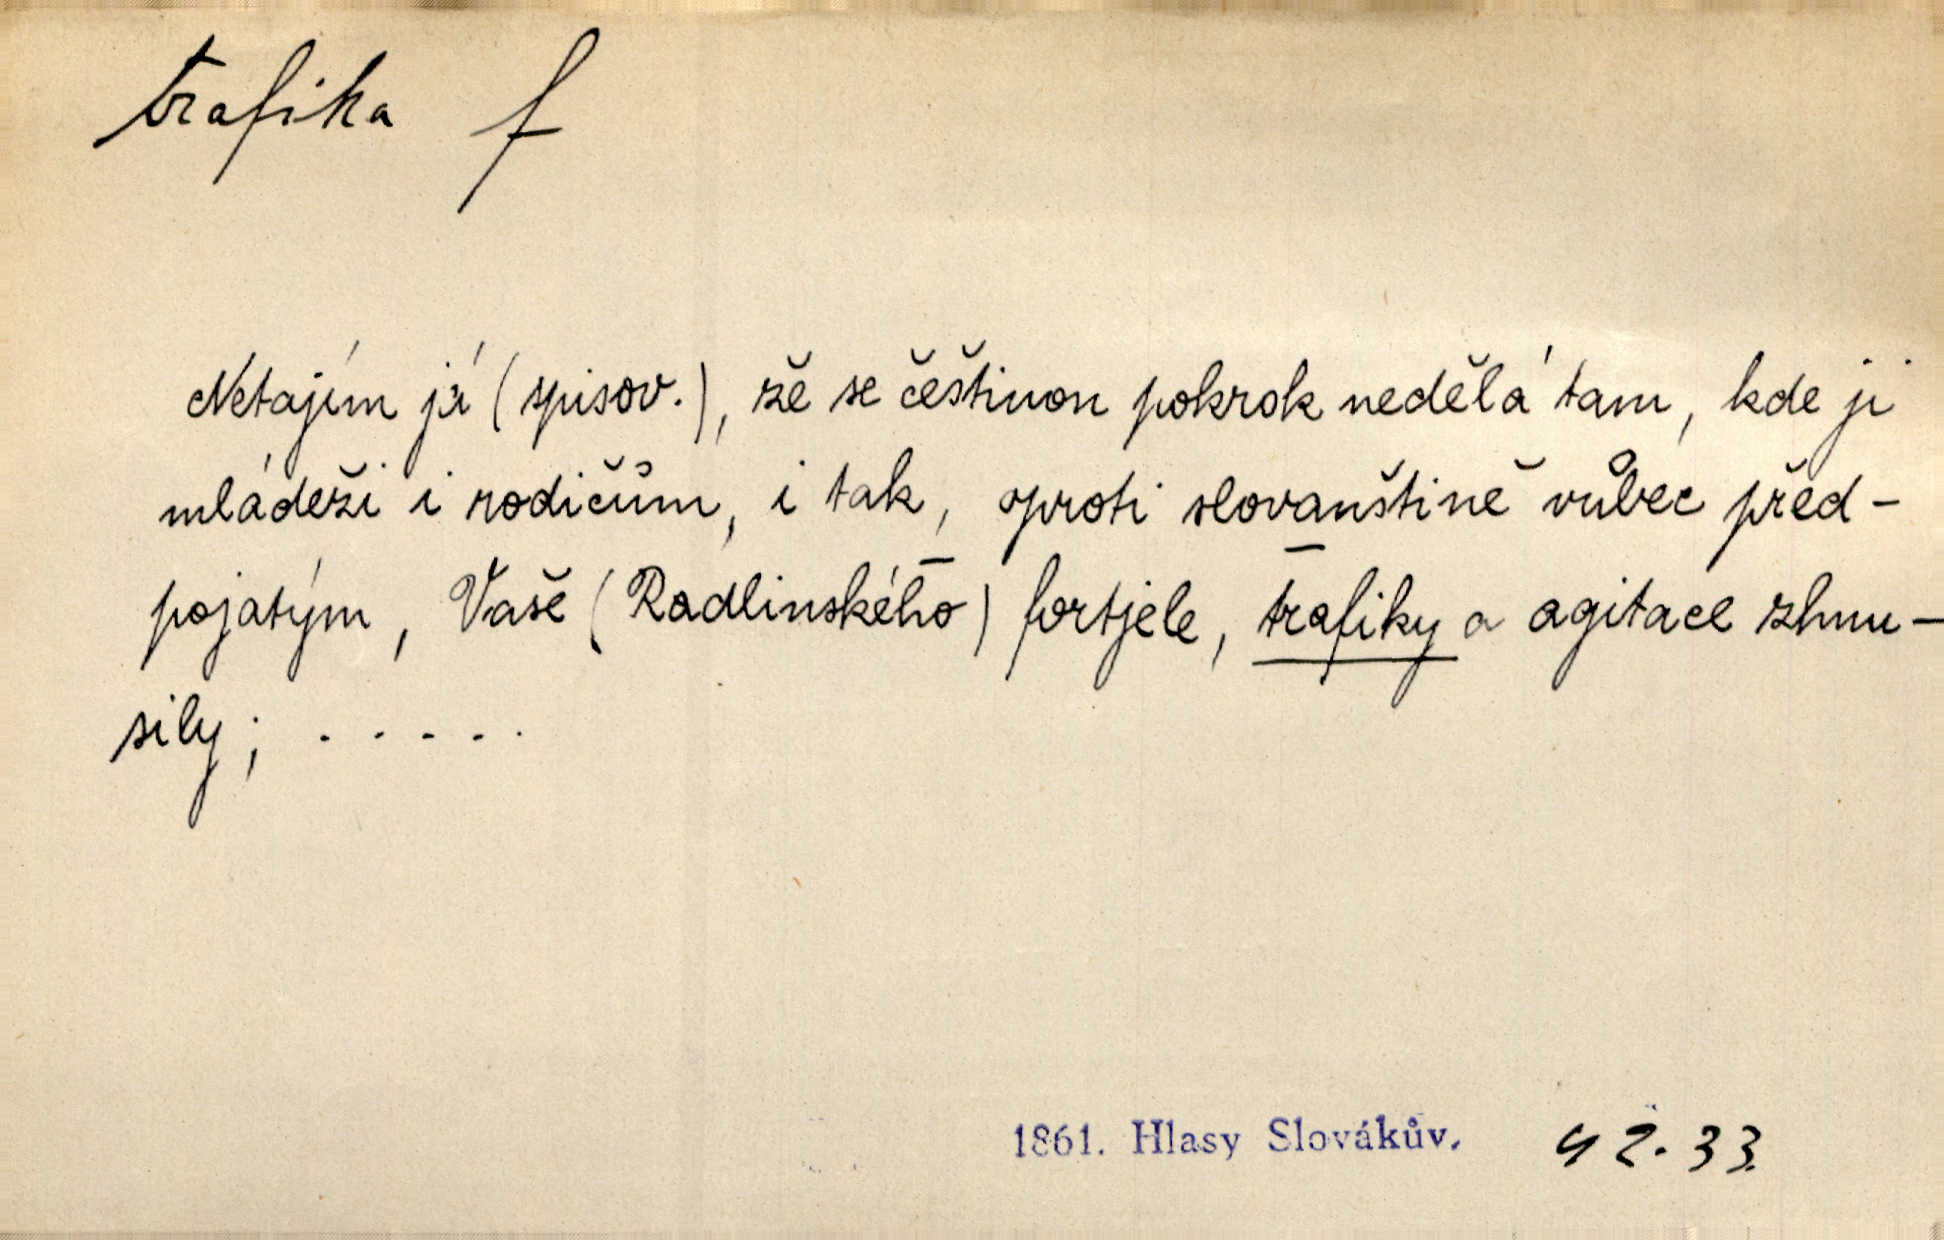 trafika f
Netajím já (spisov.), že se češtinou pokrok nedělá tam, kde ji
mládeži i rodičům, i tak, oproti slovanštině vůbec před-
pojatým, Vaše (Radlinského) fortjele, trafiky a agitace zhnu-
sily; . . . . .
1861. Hlasy Slovákův. 42.33.